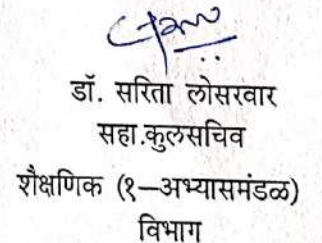 डॉ. सरिता लोसरवार
सहा.कुलसचिव
शैक्षणिक (१—अभ्यासमंडळ)
विभाग